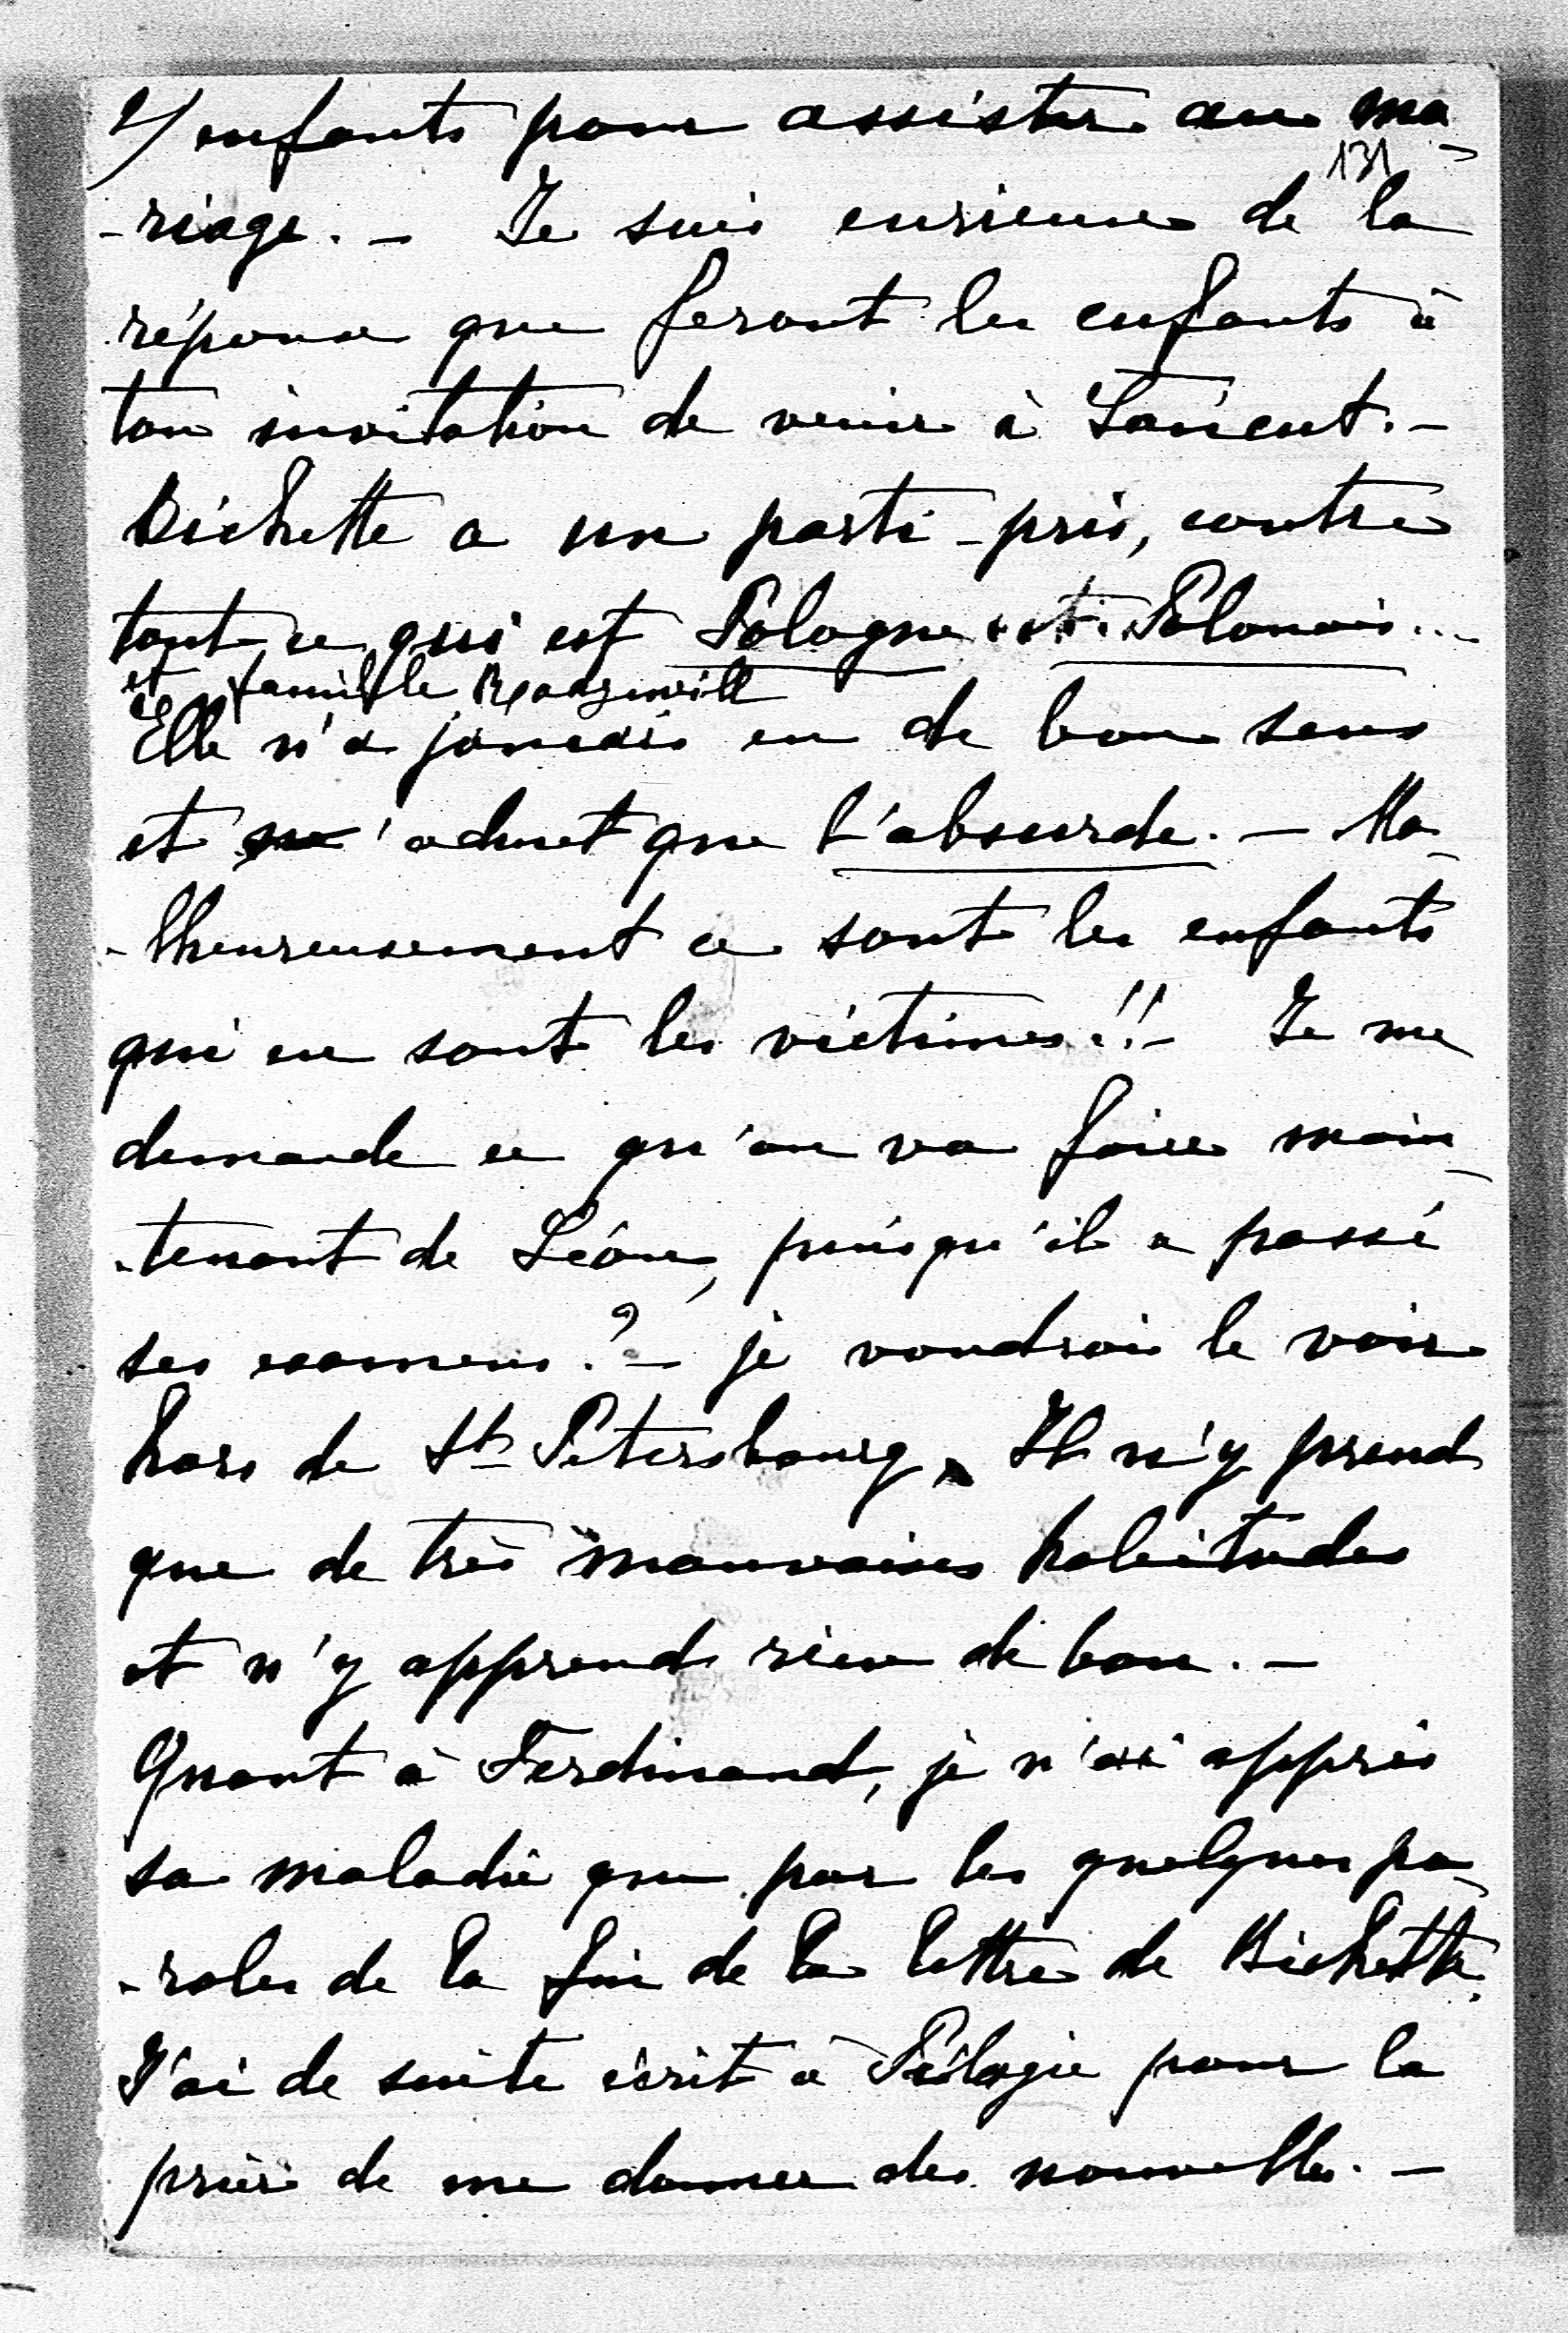 2/ enfants pour assister au ma-
131
-riage. - Je suis curieuse de la
réponse que feront les enfants à
ton invitation de venir à Łańcut. -
Bichette a un parti-pris, contre
tout ce qui est Pologne et Polonais...
et famille Radziwill
Elle n'a jamais eu de bon sens
et n'admet que l'absurde. - Ma-
-lheureusement ce sont les enfants
qui en sont les victimes!! - Je me
demande ce qu'on va faire main-
-tenant de Léon, puisqu'il a passé
ses examens? - je voudrais le voir
hors de St Petersbourg. Il n'y prend
que de très mauvaises habitudes
et n'y apprend rien de bon. -
Quant à Ferdinand, je n'ai appris
sa maladie que par les quelques pa-
-roles de la fin de la lettre de Bichette.
J'ai de suite écrit à Pélagie pour la
prier de me donner des nouvelles. -